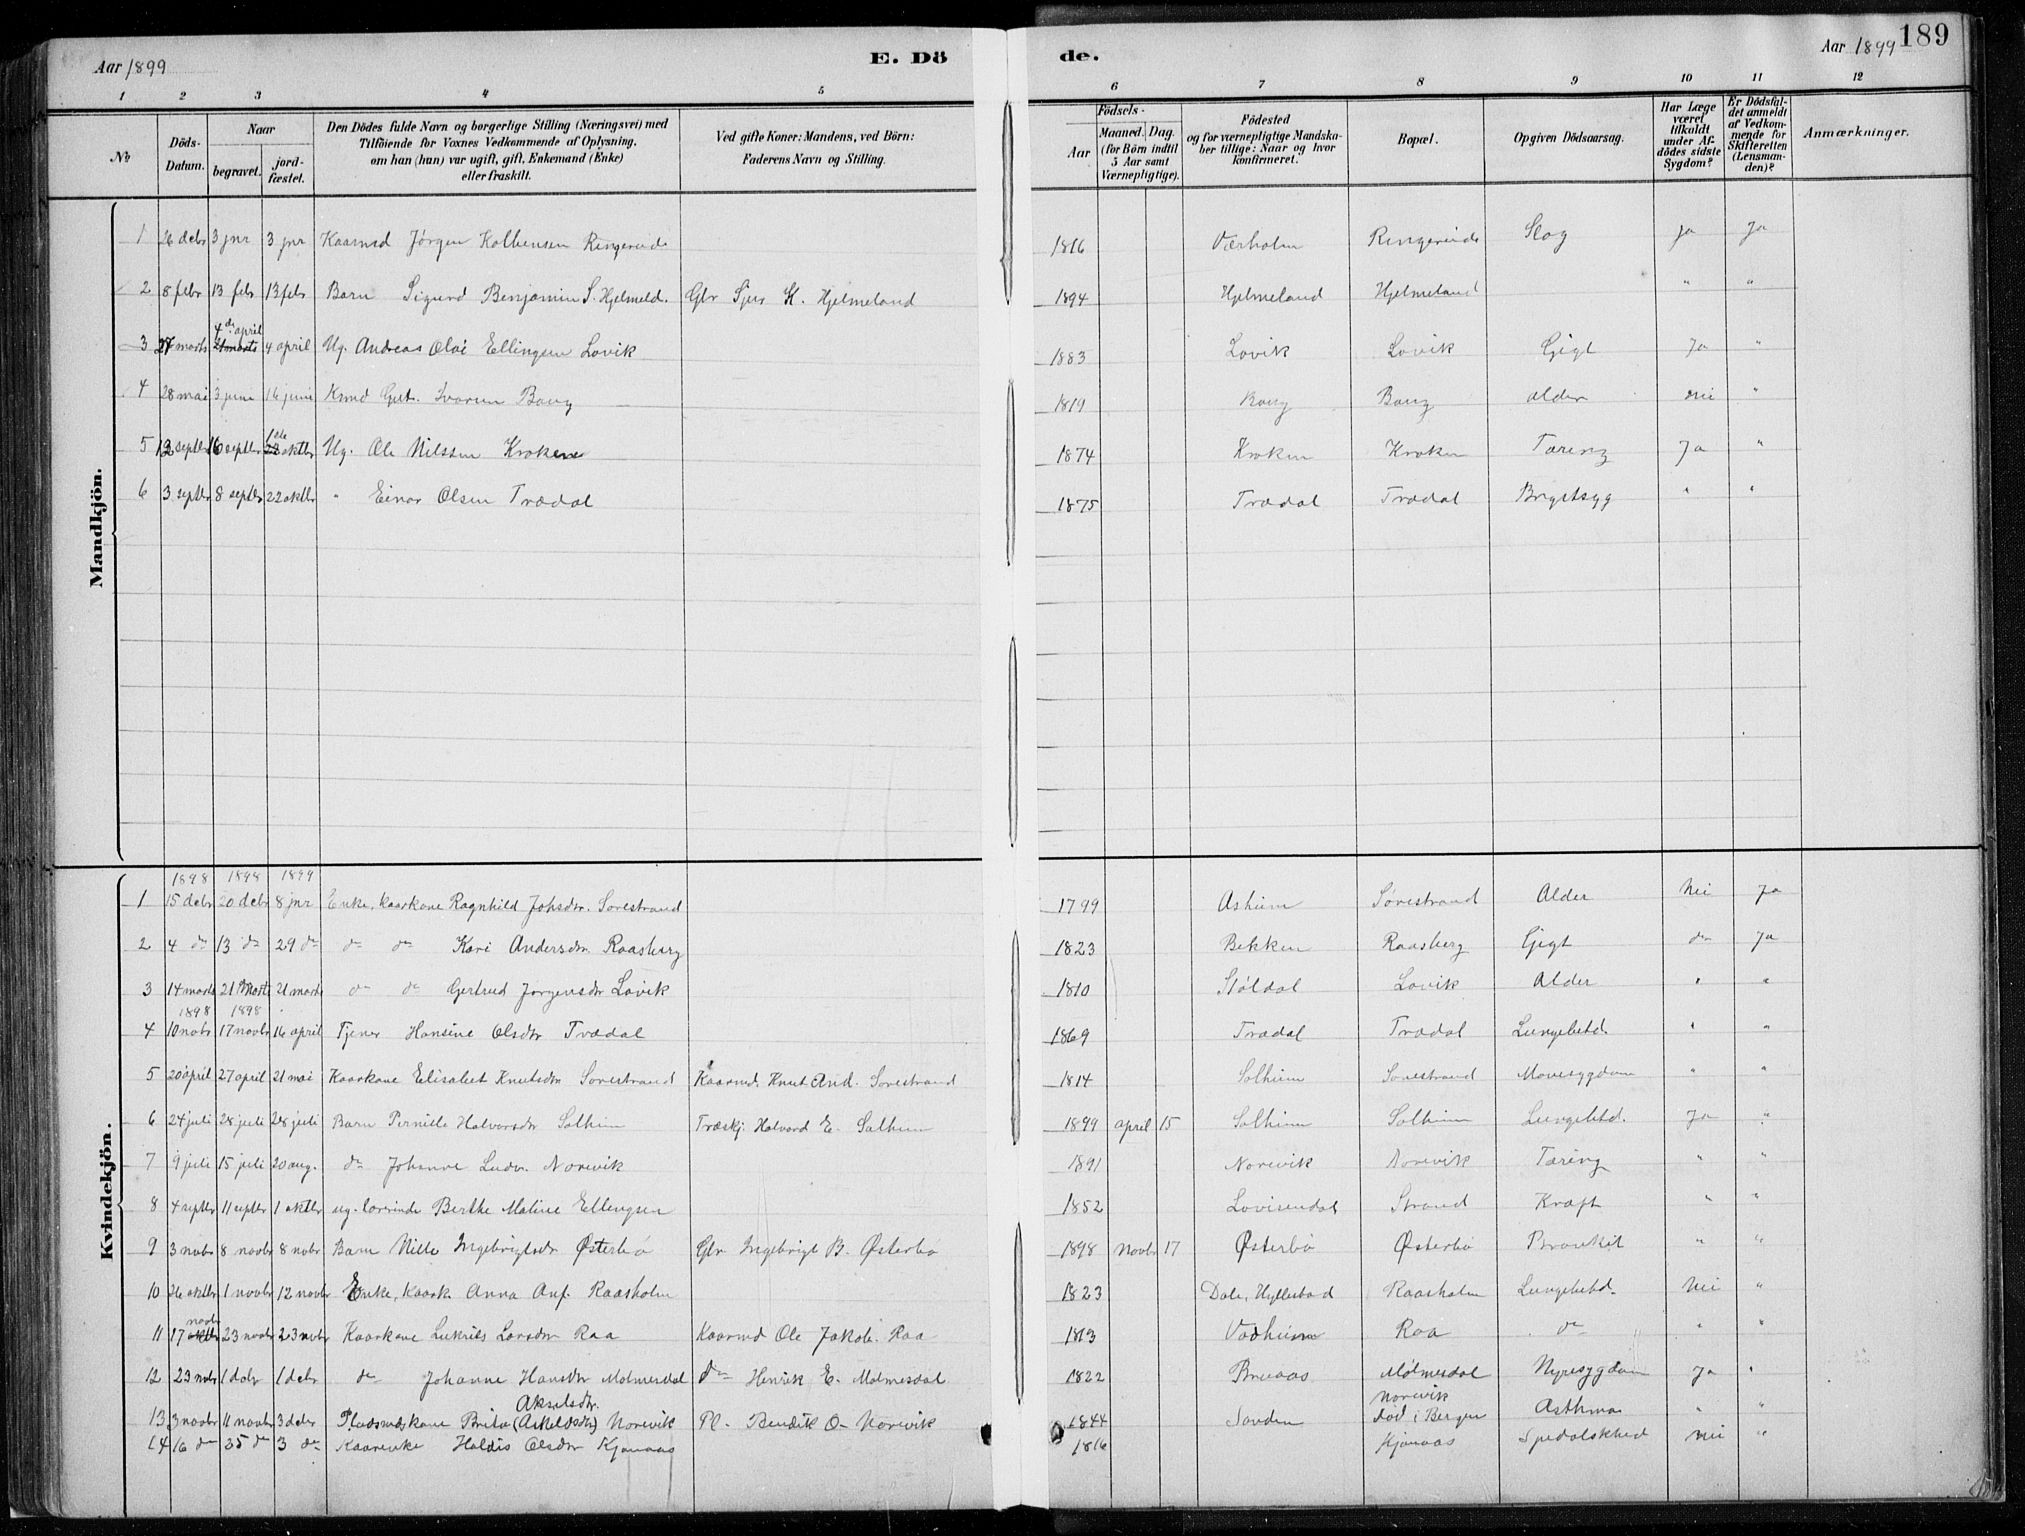 Aar 1899 E. Dö de. Aar 1899 189
1 2 3 4 5 6 7 8 9 10 11 12
No
Döds-Datum.
Naar
begravet.
jord-fæstet.
Den Dödes fulde Navn og borgerlige Stilling (Næringsvei) med
Tilföiende for Voxnes Vedkommende af Oplysning,
om han (hun) var ugift, gift, Enkemand (Enke)
eller fraskilt.
Ved gifte Koner: Mandens, ved Börn:
Faderens Navn og Stilling.
Födsels-
Aar
Maaned. Dag.
(for Börn indtil
5 Aar samt
Værnepligtige).
Födested
og for værnepligtige Mandska-
ber tillige: Naar og hvor
konfirmeret.
Bopæl.
Opgiven Dödsaarsag.
Har Læge
været
tilkaldt
under Af-
dödes sidste
Sygdom?
Er Dödsfal-
det anmeldt
af Vedkom-
mende for
Skifteretten
(Lensman-
den)?
Anmærkninger.
Mandkjön.
1 26 debr 3 jnr 3 jnr Kaarmd Jørgen Kolbensen Ringereide 1816 Værholm Ringereide Slag Ja Ja
2 8 febr 13 febr 13 febr Barn Sigurd Benjamin S. Hjelmeld. Gbr Sjur K. Hjelmeland 1894 Hjelmeland Hjelmeland " "
4 de april
3 27 marts 21 marts 4 april Ug. Andreas Olai Ellingsen Lavik 1883 Lavik Lavik Gigt Ja "
4 28 mai 3 juni 16 juni Knud Gut. Ivarsen Bang 1819 Bang Bang alder nei "
5 12 septbr 16 septbr 1ste oktbr Ug. Ole Nilssen Kroken 1874 Kroken Kroken Tæring Ja "
6 3 septbr 8 septbr 22 oktbr " Einar Olsen Trædal 1875 Trædal Trædal Brystsyg " "
Kvindekjön.
1898 1898 1899
1 15 debr 20 debr 8 jnr Enke, kaarkone Ragnhild Johsdtr. Sørestrand 1799 Asheim Sørestrand Alder Nei Ja
2 4 do 13 do 29 do do do Kari Andersdtr. Raasberg 1823 Bekken Raasberg Gigt do Ja
3 14 marts 21 marts 21 marts do do Gertrud Jørgensdtr Lavik 1810 Støldal Lavik Alder " "
1898 1898
4 10 nobr 17 novbr 16 april Tjener Hansine Olsdtr Trædal 1869 Trædal Trædal Lungebetd. " "
5 20 april 27 april 21 mai Kaarkone Elisabet Knutsdtr Sørestrand Kaarmd. Knut And. Sørestrand 1814 Solheim Sørestrand Mavesygdom " "
6 24 juli 28 juli 28 juli Barn Pernille Halvorsdtr Solheim Træskj. Halvord E. Solheim 1899 april 15 Solheim Solheim Lungebetd. Ja "
7 9 juli 15 juli 20 aug. do Johanne Ludv. Norevik 1891 Norevik Norevik Tæring " "
8 4 septbr 11 septbr 1 oktbr ug. Berthe Maline Ellingsen 1852 Lovisendal Strand Kræft " "
9 3 nobr 8 novbr 8 nobr Barn Nille Ingebrigtsdtr Østerbø Gbr Ingebrigt B. Østerbø 1898 Novbr 17 Østerbø Østerbø Bronkit " "
10 26 oktbr 1 novbr 12 novbr Enke, Kaark. Anna Anf. Raasholm 1823 Dale, Hyllestad Raasholm Lungebetd. Nei "
novbr
11 17 oktbr 23 novbr 23 nobr Kaarkone Lukris Larsdtr Raa Kaarmd Ole Jakob. Raa 1813 Vadheim Raa do " "
12 23 nobr 1 debr 1 debr do Johanne Hansdtr Mølmesdal do Henrik E. Mølmesdal 1822 Bruaas Mølmesdal Nyresygdom Ja "
Akselsdtr. Norevik
13 3 novbr 11 novbr 3 debr Pladsmdskone Brita (Askeldsdtr) Norevik Pl. Bendik O. Norevik 1844 Sanden død i Bergen Asthma " "
14 16 do 25 do 3 do Kaarenke Haldis Olsdtr Kjønaas 1816 Kjønaas Spedalskhed nei "